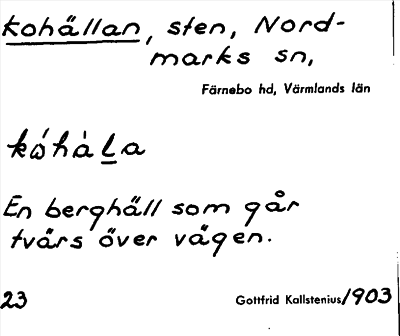 kohällan, sten, Nord-
marks sn,
Färnebo hd, Värmlands län
kώhàLa
En berghäll som går
tvärs över vägen.
23 Gottfrid Kallstenius/1903